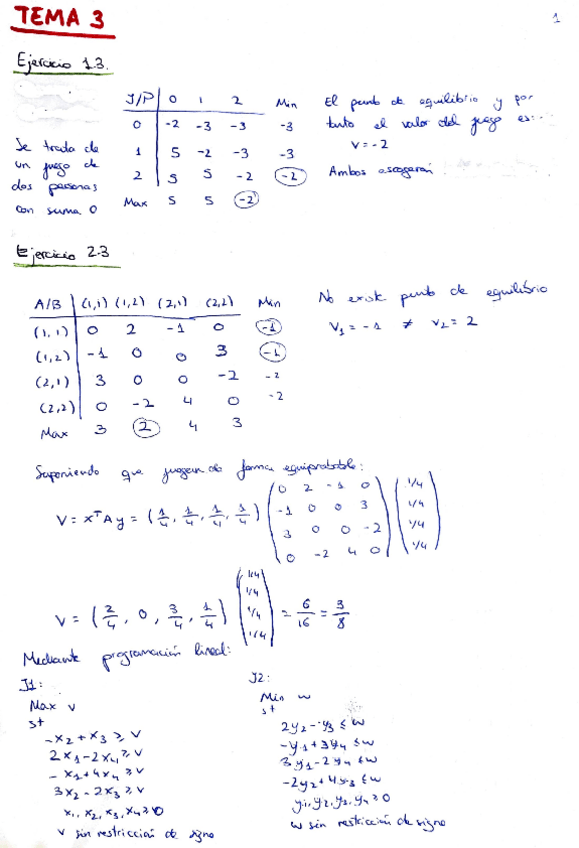 TEMA 3
1
Ejercicio 1.3.
J/P 0 1 2 Min
0 -2 -3 -3 -3
1 5 -2 -3 -3
2 5 5 -2 -2
Max 5 5 -2
Se trata de
un juego de
dos personas
con suma 0
El punto de equilibrio y por
tanto el valor del juego es:
V = -2
Ambos escogerán
Ejercicio 2.3
A/B (1,1) (1,2) (2,1) (2,2) Min
(1,1) 0 2 -1 0 -1
(1,2) -1 0 0 3 -1
(2,1) 3 0 0 -2 -2
(2,2) 0 -2 4 0 -2
Max 3 2 4 3
No existe punto de equilibrio
V1 = -1 ≠ V2 = 2
Suponiendo que juegan de forma equiprobable:
V = x^T A y = (1/4, 1/4, 1/4, 1/4) (0 2 -1 0
-1 0 0 3
3 0 0 -2
0 -2 4 0) (1/4
1/4
1/4
1/4)
V = (2/4, 0, 3/4, 1/4) (1/4
1/4
1/4
1/4) = 6/16 = 3/8
Mediante programación lineal:
J1:
Max v
st
-x2 + x3 ≥ v
2x1 - 2x4 ≥ v
-x1 + 4x4 ≥ v
3x2 - 2x3 ≥ v
x1, x2, x3, x4 ≥ 0
v sin restricción de signo
J2:
Min w
st
2y2 - y3 ≤ w
-y1 + 3y4 ≤ w
3y1 - 2y4 ≤ w
-2y2 + 4y3 ≤ w
y1, y2, y3, y4 ≥ 0
w sin restricción de signo